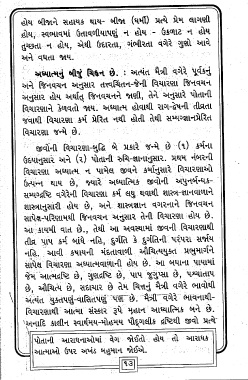 હોય બીજાને સહાયક થાય- બીજા (ધર્મી) પ્રત્યે પ્રેમ લાગણી
હોય, સ્વભાવમાં ઉતાવળીયાપણું ન હોય - ઉકળાટ ન હોય
તુચ્છતા ન હોય, એથી ઉદારતા, ગંભીરતા વગેરે ગુણો આવે
અને વધતા જાય.
અધ્યાત્મનું બીજું ચિહ્ન છે. : અત્યંત મૈત્રી વગેરે પૂર્વકનું
અને જિનવચન અનુસાર તત્ત્વચિંતન-જેની વિચારણા જિનવચન
અનુસાર હોય અર્થાત્ જિનવચનને જાણી, તેને અનુસારે પોતાની
વિચારણાને કેળવતો જાય. અધ્યાત્મ હોવાથી રાગ-દ્વેષની તીવ્રતા
જવાથી વિચારણા કર્મ પ્રેરિત નથી હોતી તેથી સમ્યગ્જ્ઞાનપ્રેરિત
વિચારણા જન્મે છે.
જીવોની વિચારણા-બુદ્ધિ બે પ્રકારે જન્મે છે (૧) કર્મના
ઉદયાનુસારે અને (૨) પોતાની રુચિ-જ્ઞાનાનુસાર. પ્રથમ નંબરની
વિચારણા અધ્યાત્મ ન પામેલ જીવને કર્માનુસારી વિચારણાઓ
ઉત્પન્ન થાય છે, જ્યારે અધ્યાત્મિક જીવોની અપુનર્બન્ધક-
સમ્યગ્દૃષ્ટિ વગેરેની વિચારણા કર્મ લઘુ થવાથી શાસ્ત્ર-જ્ઞાનવાળાને
શાસ્ત્રાનુસારી હોય છે, અને શાસ્ત્રજ્ઞાન વગરનાને જિનવચન
સાપેક્ષ-પરિણામથી જિનવચન અનુસાર તેની વિચારણા હોય છે.
આ કાયમી વાત છે., તેથી આ અવસ્થામાં જીવની વિચારણાથી
તીવ્ર પાપ કર્મ બાંધે નહિ, દુર્ગતિ કે દુર્ગતિની પરંપરા સર્જાય
નહિ. આવી કષાયની મંદતાવાળી ઔચિત્યયુક્ત પ્રભુમાર્ગને
સાપેક્ષ વિચારણા અધ્યાત્મવાળાની હોય છે. આ બધાના પાયામાં
જેમ આત્મદ્રષ્ટિ છે, ગુણદ્રષ્ટિ છે, પાપ જુગુપ્સા છે, પશ્ચાતાપ
છે, ઔચિત્ય છે, સદાચાર છે તેમ ચિત્તનું મૈત્રી વગેરે ભાવોથી
અત્યંત યુક્તપણું-વાસિતપણું પણ છે. મૈત્રી વગેરે ભાવનાથી-
વિચારણાથી આત્મા સંસ્કાર રૂપે મહાન આધ્યાત્મિક બને છે.
અનાદિ કાલીન સ્વાર્થમય-મોહમય પૌદ્‌ગલીક દ્રષ્ટિથી જીવો પ્રત્યે
પોતાની આરાધનાઓમાં વેગ જોઈતો હોય તો આરાધક
આત્માઓ ઉપર અખંડ બહુમાન જોઈએ.
૧૩